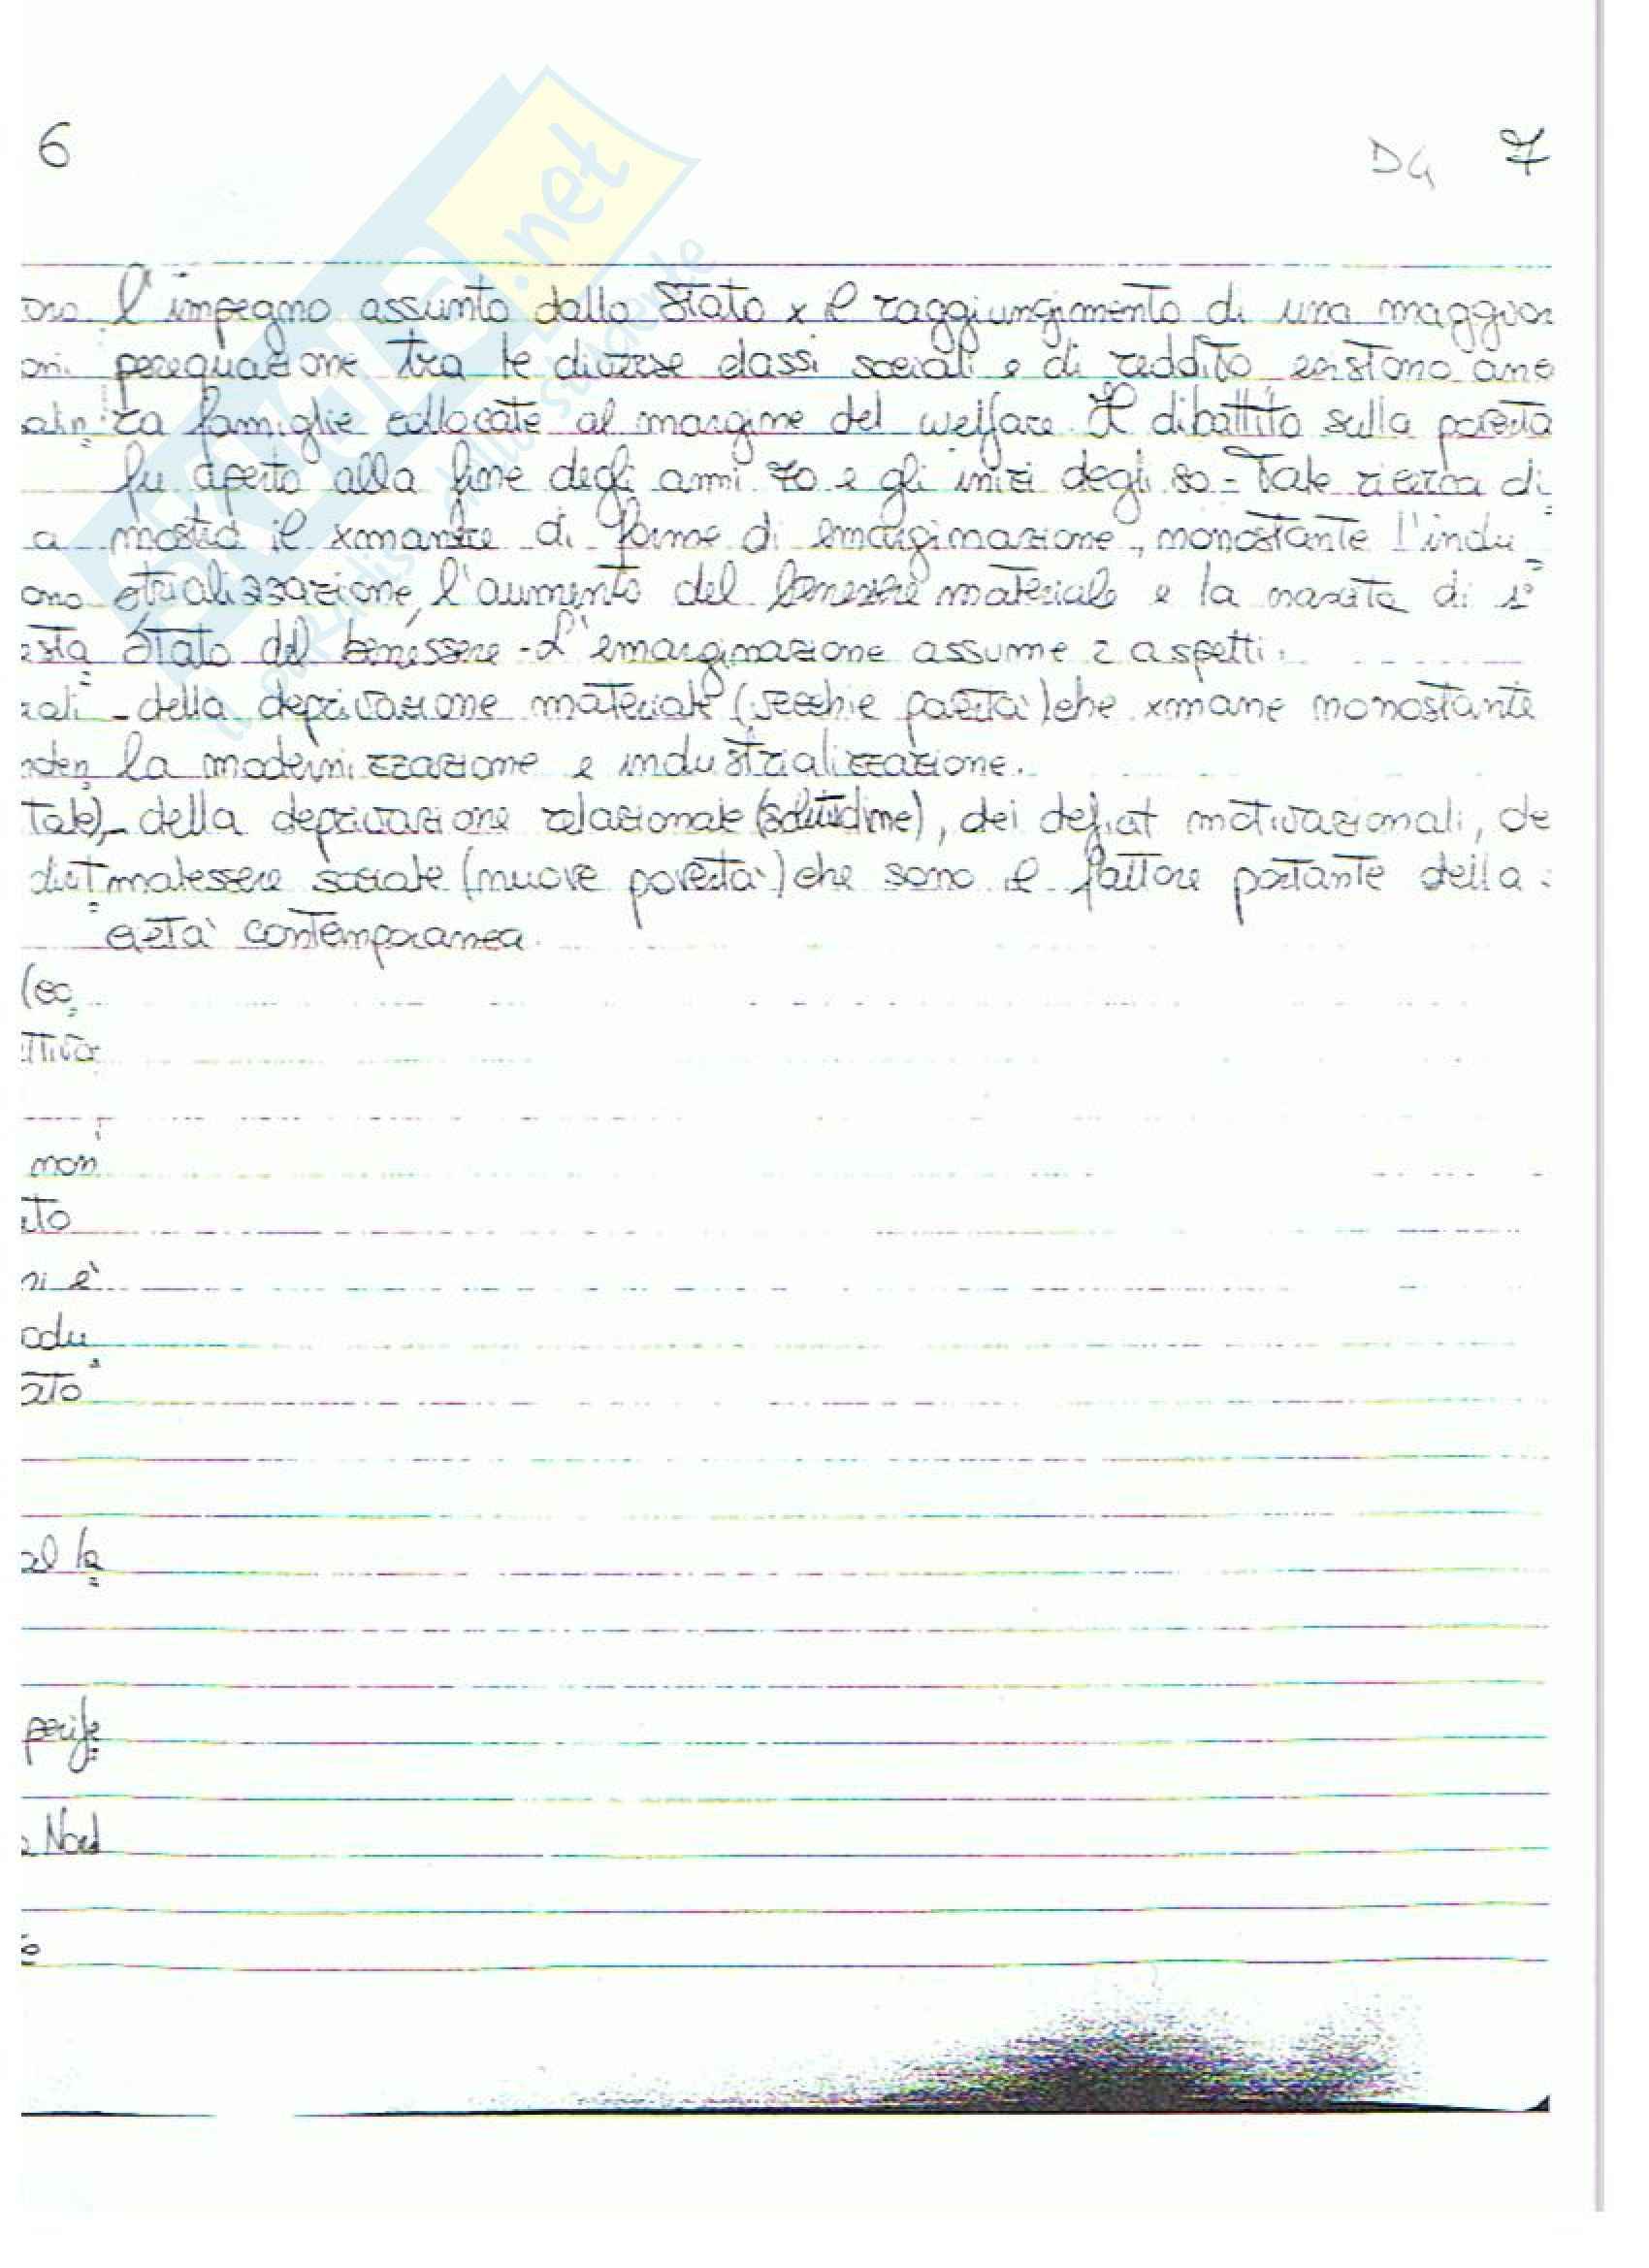 6
DG 7
l'impegno assunto dallo Stato x il raggiungimento di una maggior
perequazione tra le diverse classi sociali e di reddito esistono anc
ra famiglie collocate al margine del welfare. Il dibattito sulla povertà
fu aperto alla fine degli anni 70 e gli inizi degli 80 - Tale ricerca di
a mostrò il xmanere di forme di emarginazione, nonostante l'indu
ono strializzazione, l'aumento del benessere materiale e la nascita di 1°
esta Stato del benessere - L'emarginazione assume 2 aspetti:
rali - della deprivazione materiale (vecchie povertà) che xmane nonostante
nden la modernizzazione e industrializzazione.
tale) - della deprivazione relazionale (solitudine), dei deficit motivazionali, de
malessere sociale (nuove povertà) che sono il fattore portante della
cietà contemporanea.
(so
ttiva
non
ato
ni è
odu
ato
al la
perife
Nord
SKUOLA.net